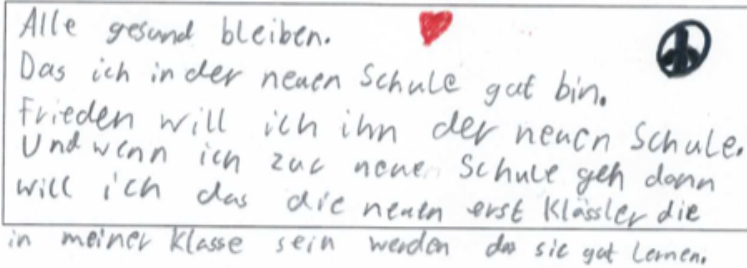 Alle gesund bleiben.
Das ich in der neuen Schule gut bin.
Frieden will ich ihn der neuen Schule.
Und wenn ich zur neue Schule geh dann
will ich das die neuen erst Klässler die
in meiner Klasse sein werden das sie gut Lernen.